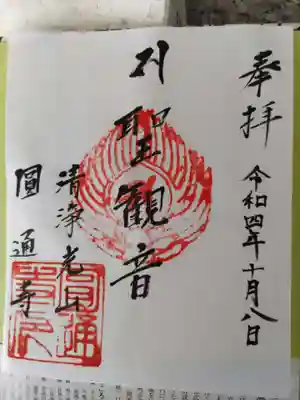 奉拝
令和四年十月八日
聖観音
清浄光山
圓通寺